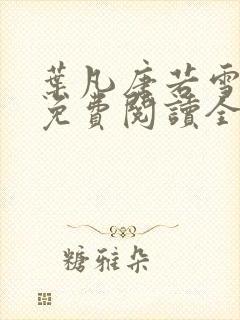 葉凡唐若雪
免費閱讀全
糖雅朵